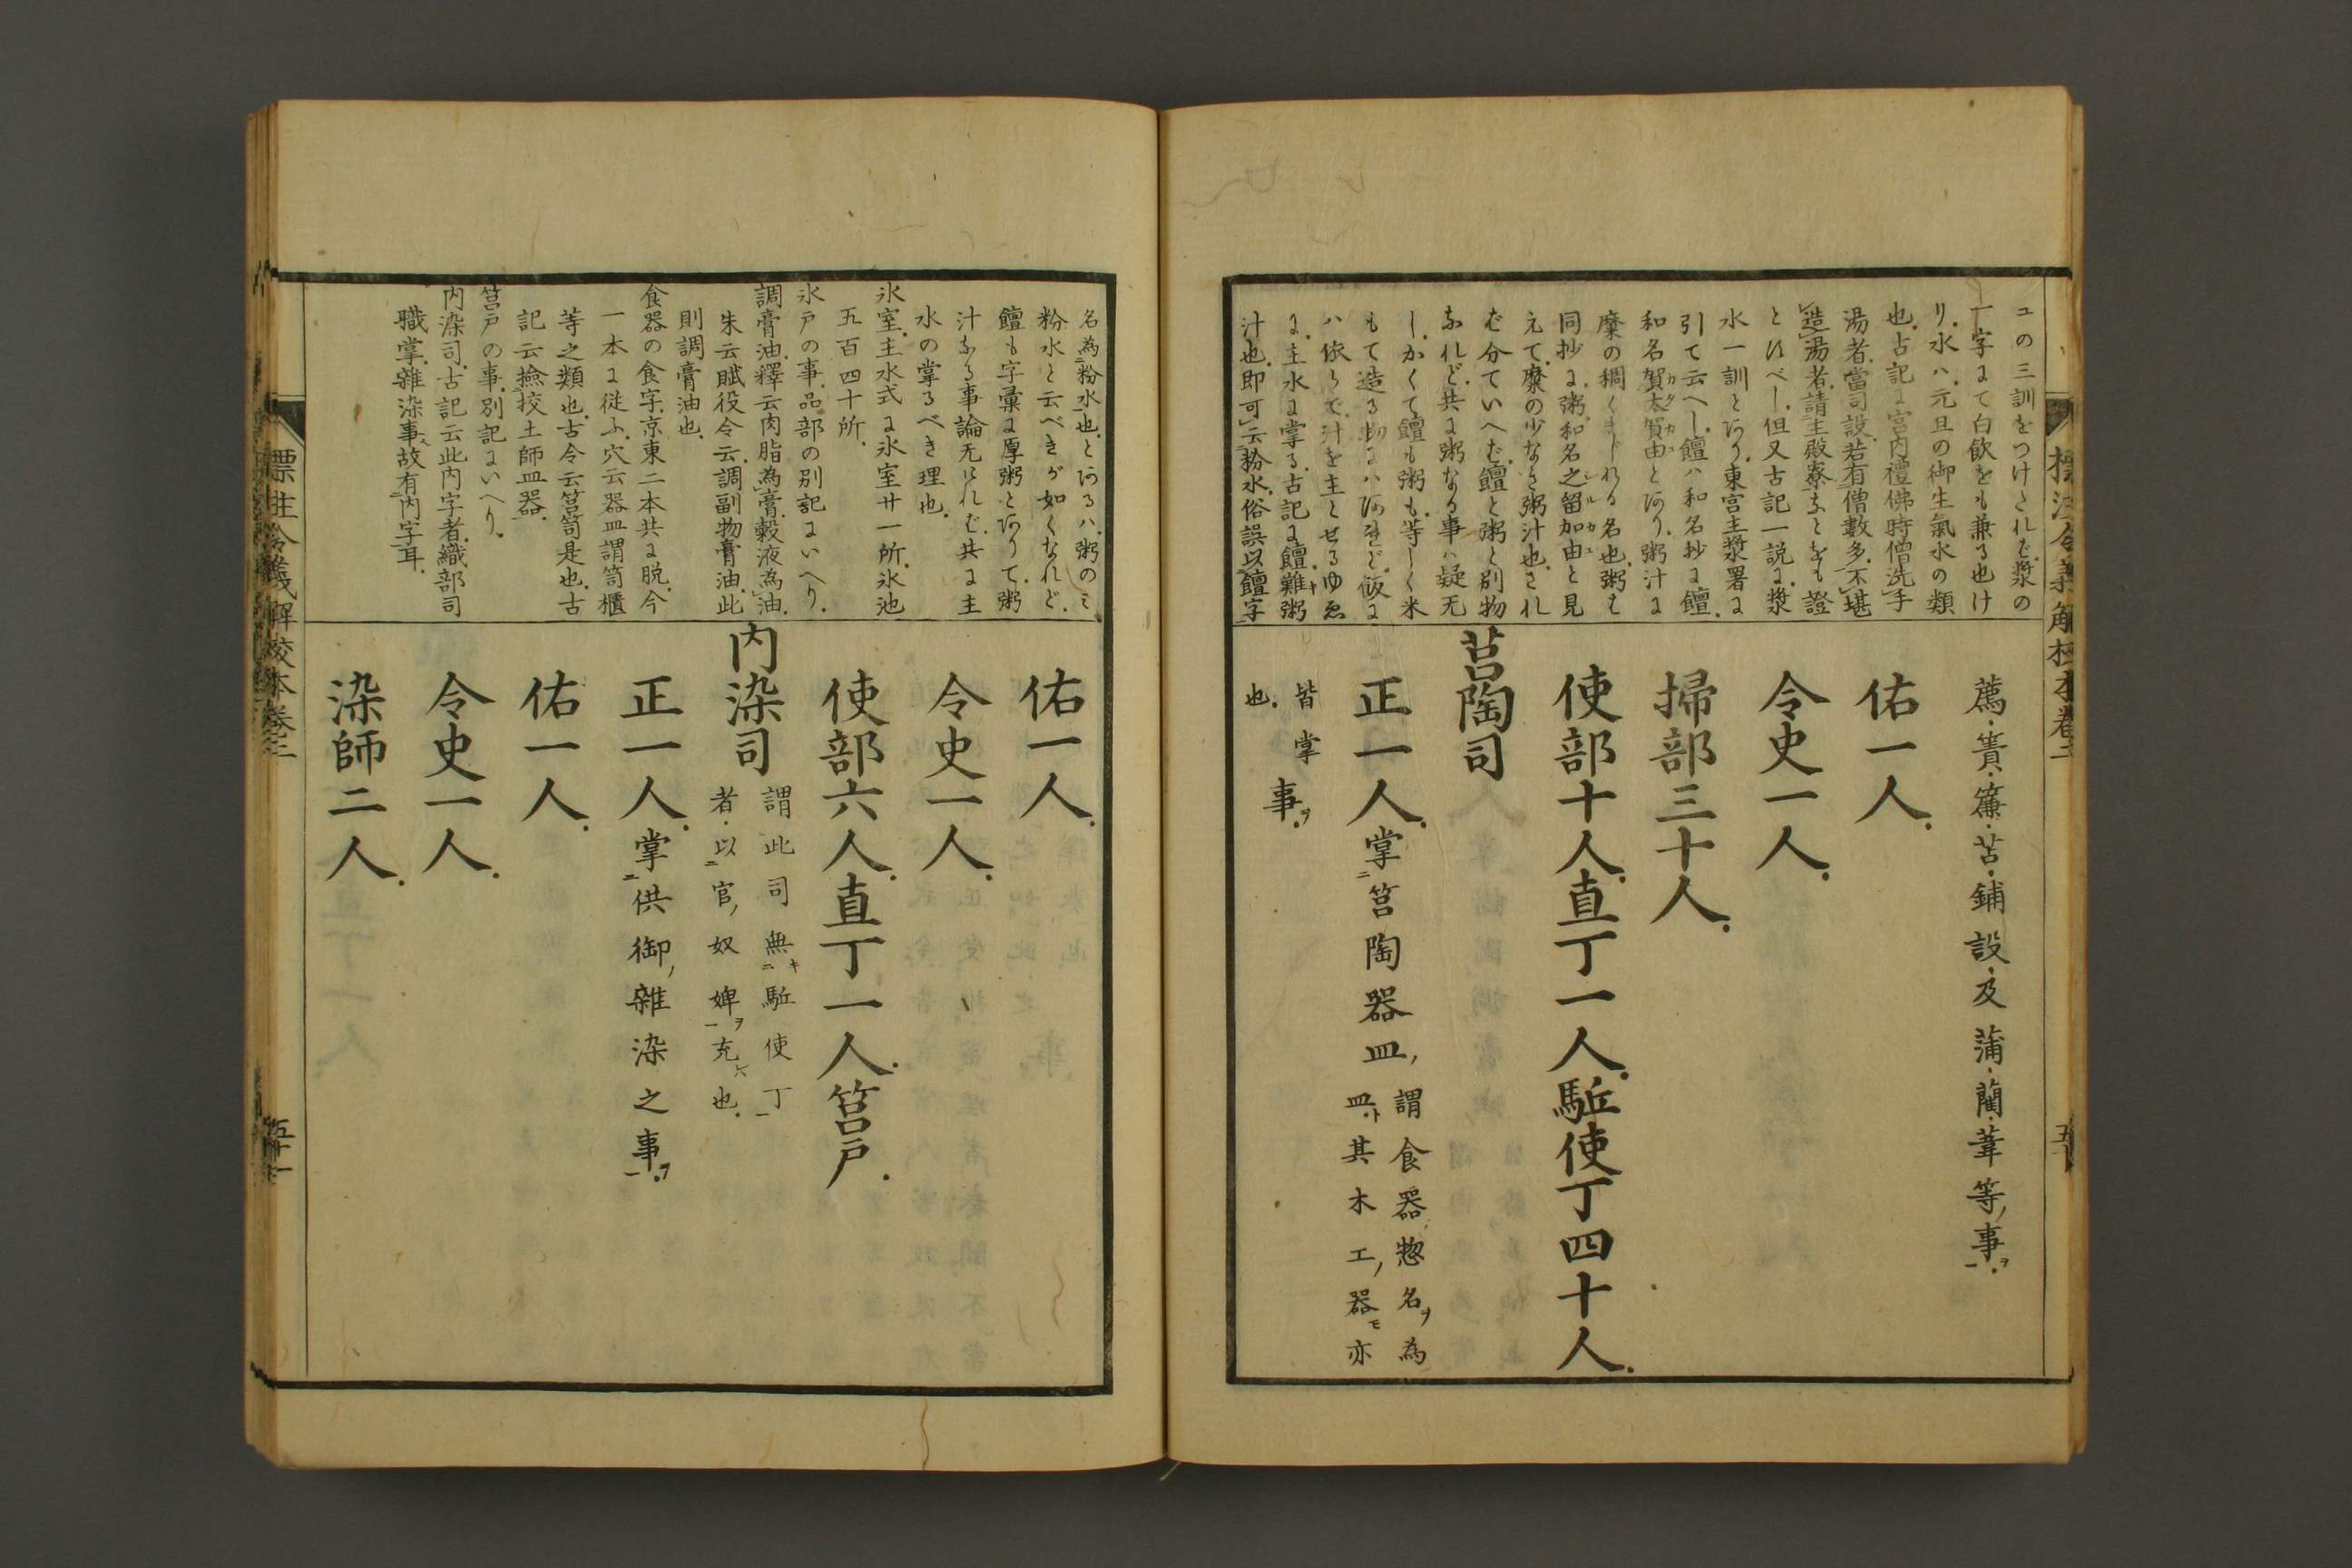 ユの三訓をつけたれど漿の
一字にて白飲をも兼る也け
リ水ハ元旦の御生氣水の類
也古記に宮内禮佛時僧洗手
湯者當司設若有僧數多不堪
造湯者請主殿寮などをも證
とすべし但又古記一説に漿
水一訓とあり東宮主漿署に
引て云へし饘ハ和名抄に饘
和名賀太賀由とあり粥汁に
糜の稠くまじれる名也粥も
同抄に粥和名之留加由と見
えて糜の少なき粥汁也され
ど分ていへど饘と粥と別物
なれど共に粥なる事ハ疑无
しかくて饘も粥も等しく米
もて造る物にハあれど飯に
ハ依らで汁を主とせるゆゑ
に主水に掌る古記に饘雜粥
汁也即可云粉水俗誤以饘字
薦簀簾苫鋪設及蒲藺葦等事
佑一人
令史一人
掃部三十人
使部十人直丁一人駈使丁四十人
筥陶司
正一人掌筥陶器皿謂食器惣名為
皿其木工器亦
皆掌事
也
標注令義解校本卷二
五十
名為粉水也とあるハ粥のミ
粉水と云べきが如くなれど
饘も字彙に厚粥とありて粥
汁なる事論无けれど共に主
水の掌るべき理也
氷室主水式に氷室廿一所氷池
五百四十所
氷戸の事品部の別記にいへり
調膏油釋云肉脂為膏穀液為油
朱云賦役令云調副物膏油此
則調膏油也
食器の食字京東二本共に脱今
一本に従ふ穴云器皿謂笥櫃
等之類也古今云筥笥是也古
記云撿挍土師皿器
筥戸の事別記にいへり
内染司古記云此内字者織部司
職掌雜染事故有内字耳
佑一人
令史一人
使部六人直丁一人筥戸
内染司謂此司無駈使丁
者以官奴婢充也
正一人掌供御雜染之事
佑一人
令史一人
染師二人
標注令義解校本卷二
五十一